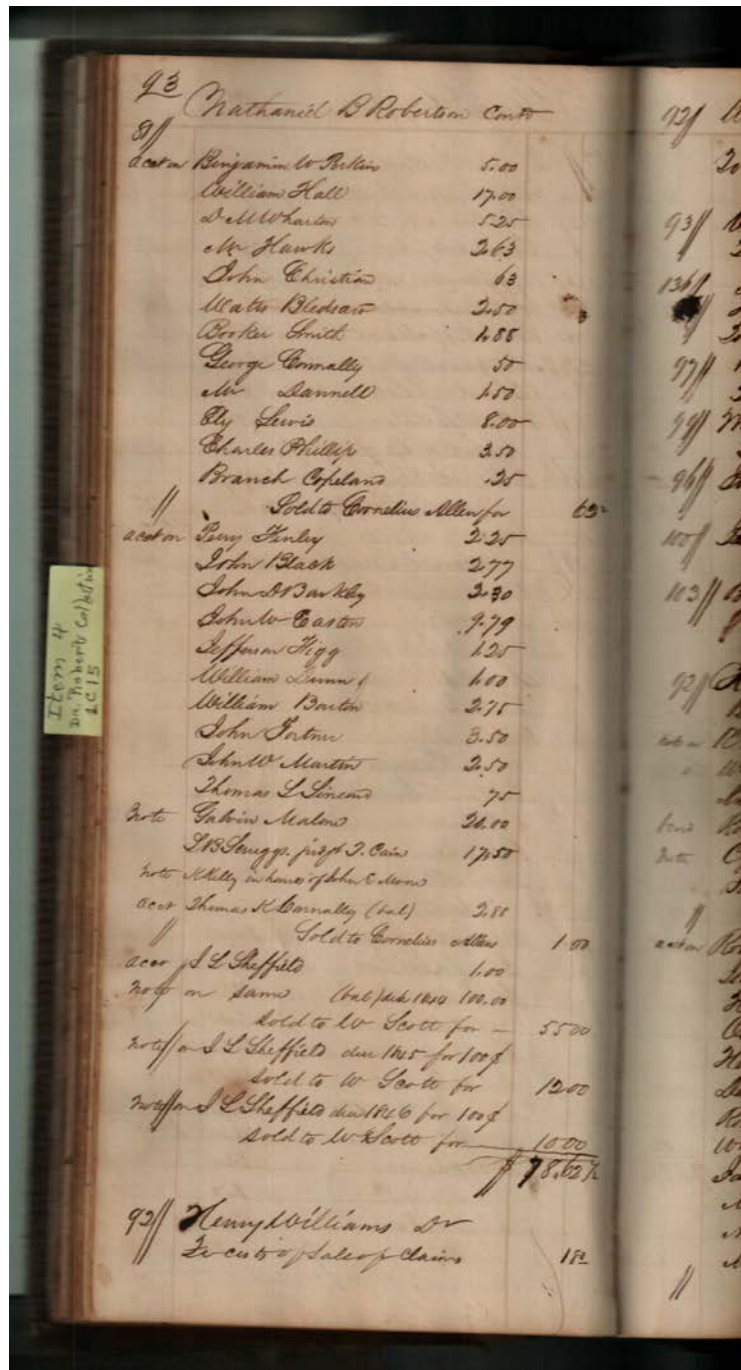 93
Nathaniel B Robertson Contd
81//
acct on Benjamin W Perkins 5.00
William Hall 17.00
D M Wharton 5.25
Mr Hawks 2.63
John Christian 63
Watts Bledsaw 2.50
Booker Smith 1.88
George Connally 50
Mr Dannell 1.50
Ely Lewis 8.00
Charles Phillip 3.50
Branch Copeland .25
// Sold to Cornelius Allen for 62
acct on Perry Finley 2.25
John Black 2.77
John D Barkley 2.30
John W Easton 9.79
Jefferson Figg 1.25
William Dunn 1.00
William Barton 2.75
John Fortner 3.50
John W Martin 2.50
Thomas L 75
Note Galvin Malone 20.00
L B Scruggs. T. Cain 17.50
Note Kelly in hands of John C Moore
acct Thomas K Connally (bal) 2.88
// Sold to Cornelius Allen 1.00
acct J L Sheffield 1.00
Note on same (bal) due 1844 100.00
sold to W Scott for — 55 00
Note// on J L Sheffield due 1845 for 100$
sold to W Scott for 12 00
Note// on J L Sheffield due 1846 for 100$
sold to W Scott for 10 00
$ 78.62½
92// Henry Williams Dr
To costs of Sale of Claims 18
Item 4
Dr. Roberts Collection
LC15
92//
93//
136//
97//
99//
96//
100//
103//
92//
acct on
bond
note
//
acct on
//